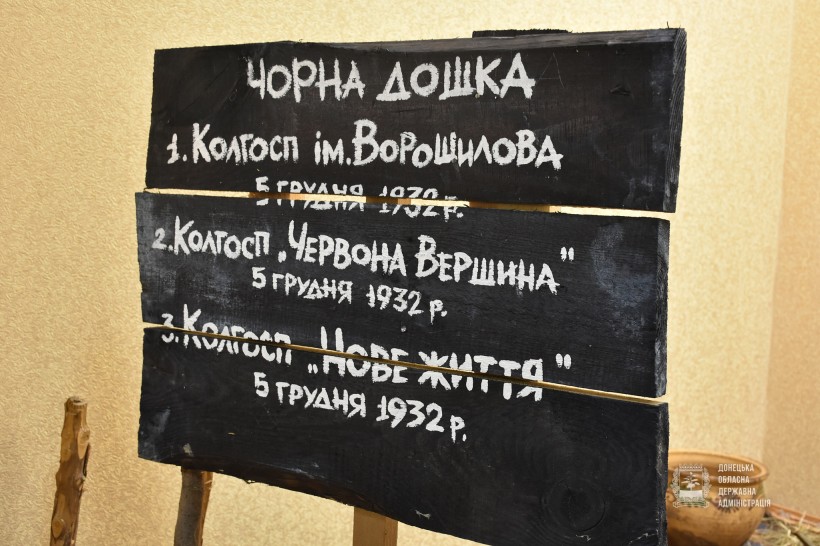 ЧОРНА ДОШКА
1. КОЛГОСП ім. ВОРОШИЛОВА
5 ГРУДНЯ 1932 р.
2. КОЛГОСП „ЧЕРВОНА ВЕРШИНА"
5 ГРУДНЯ 1932 р.
3. КОЛГОСП „НОВЕ ЖИТТЯ"
5 ГРУДНЯ 1932 р.
ДОНЕЦЬКА
ОБЛАСНА
ДЕРЖАВНА
АДМІНІСТРАЦІЯ